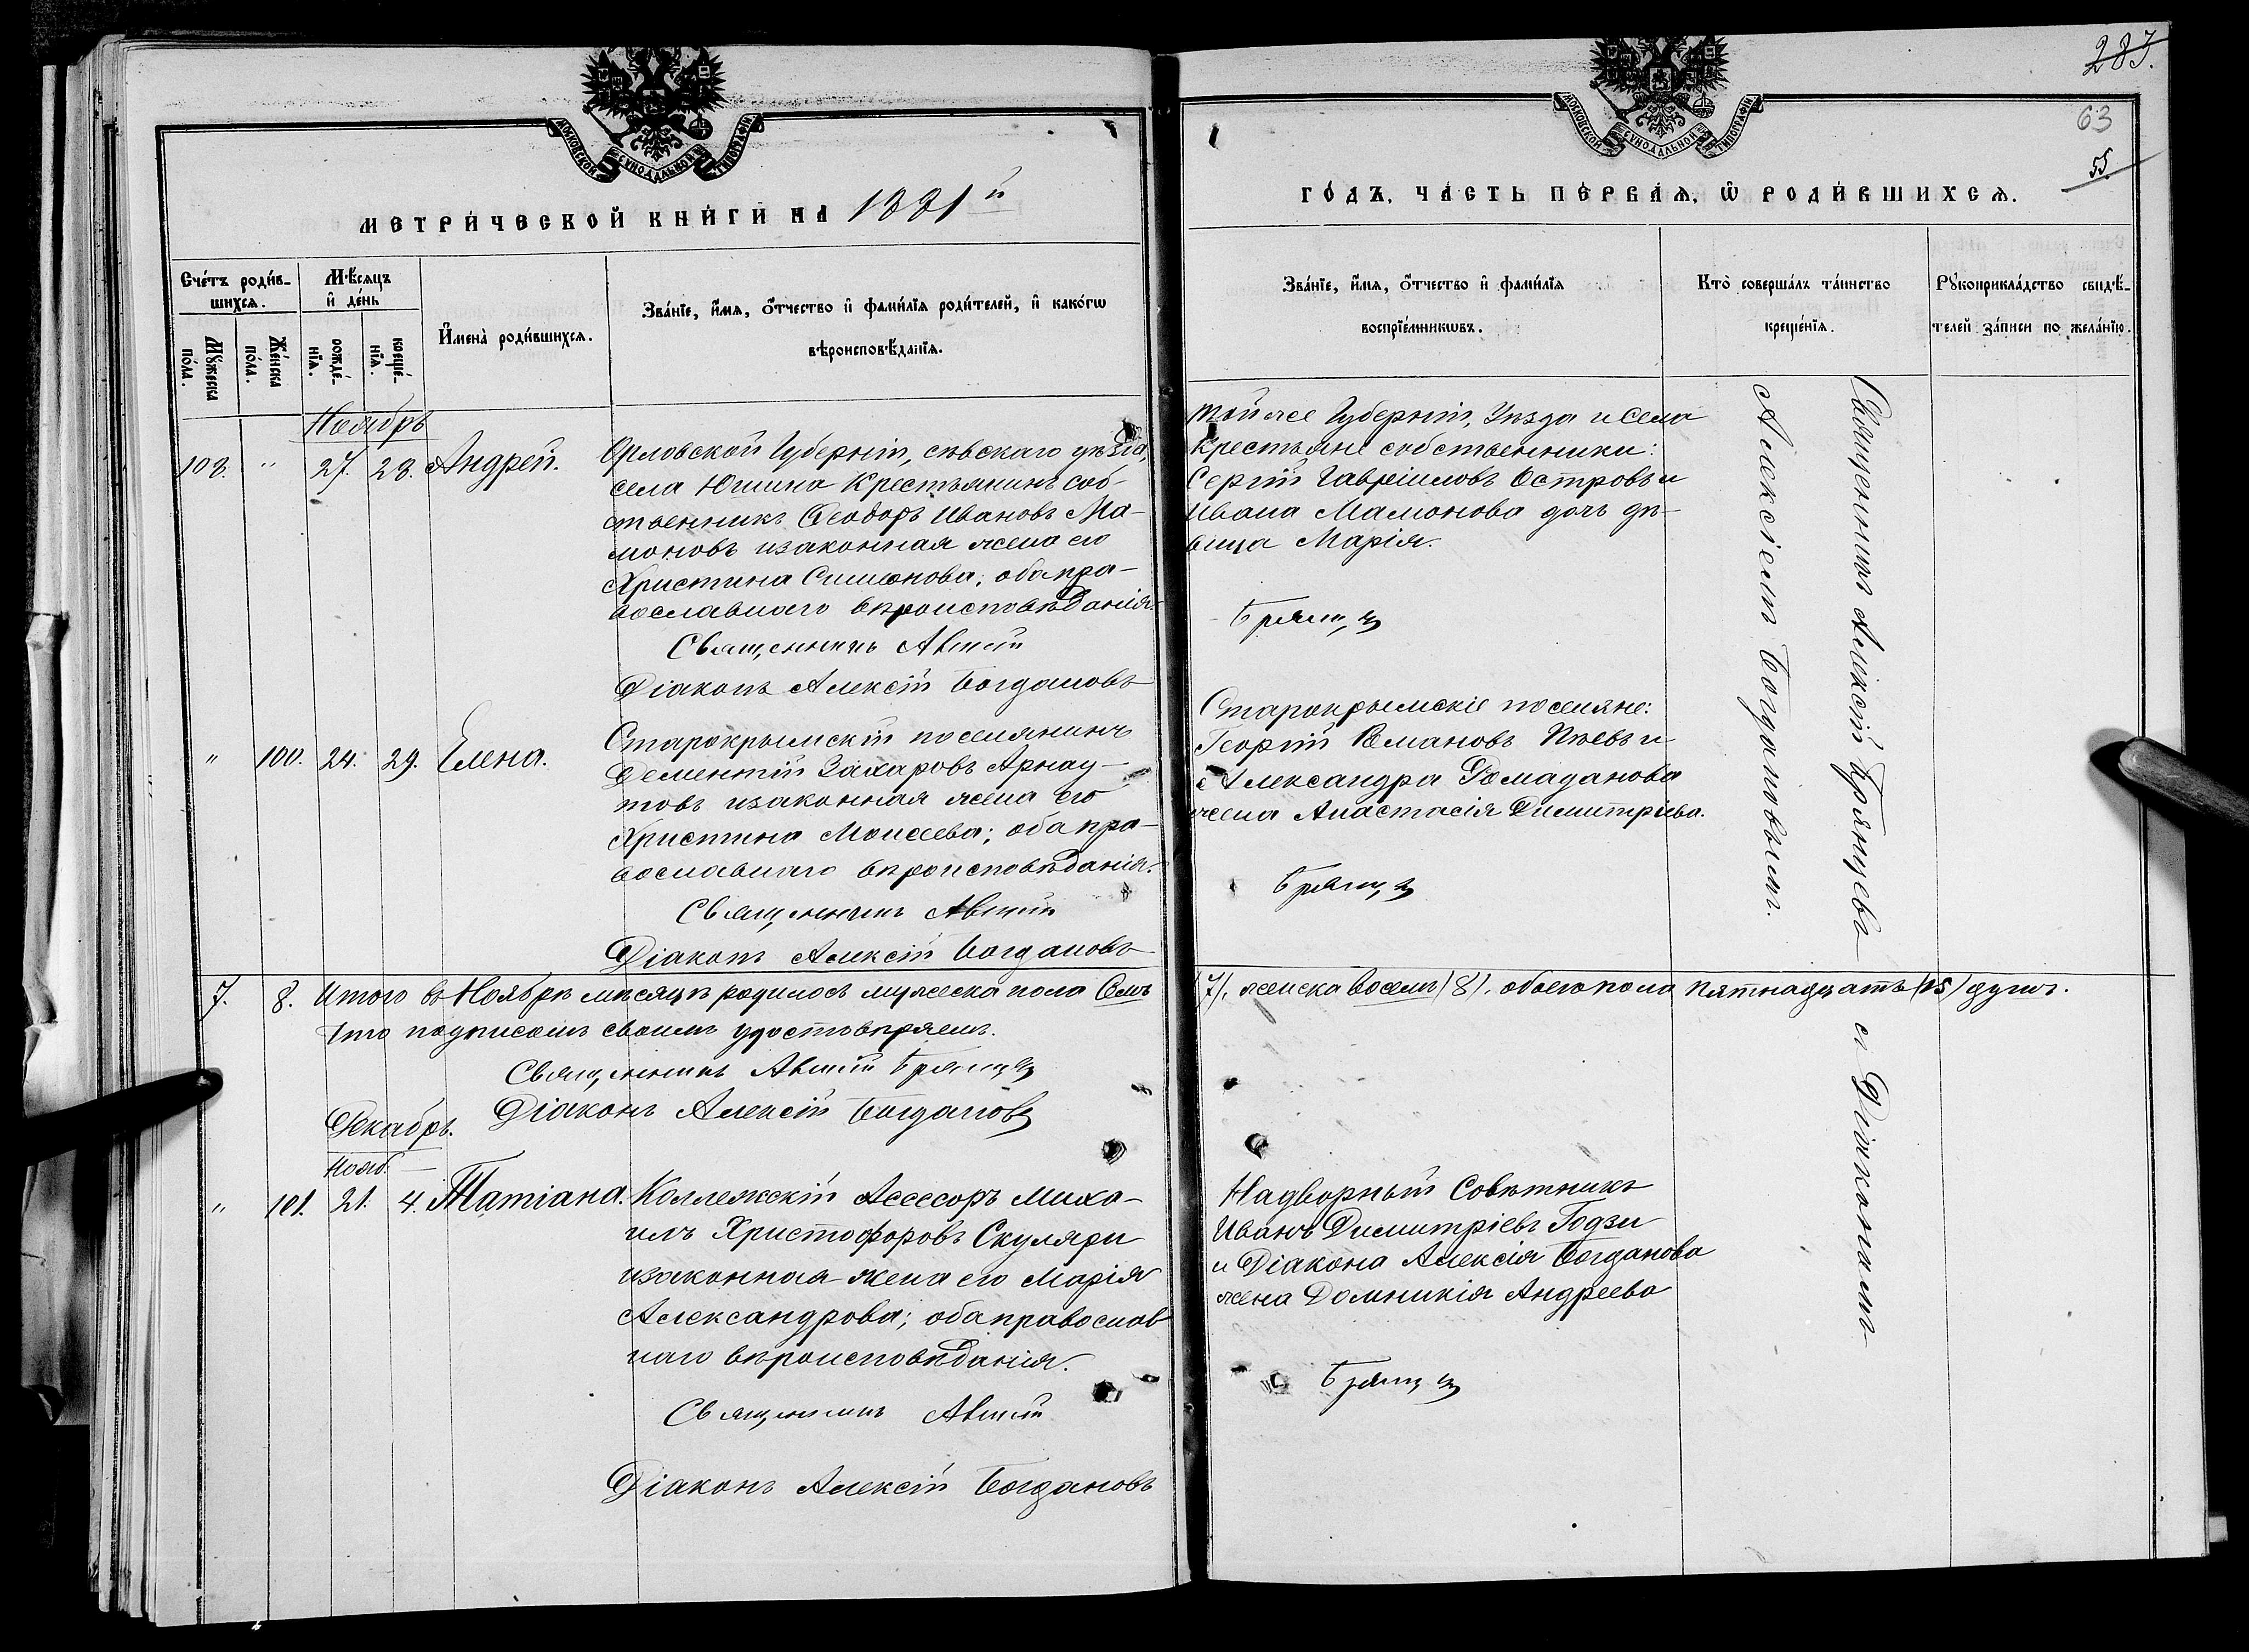 283.
63
55
МОСКОВСКОЙ СѴНОДАЛЬНОЙ ТИПОГРАФІИ
МОСКОВСКОЙ СѴНОДАЛЬНОЙ ТИПОГРАФІИ
МЕТРИ́ЧЕСКОЙ КНИ́ГИ НА 1881й
ГО́ДЪ, ЧА́СТЬ ПЕ́РВАѦ, Ѡ҆ РОДИ́ВШИХСѦ.
Сче́тъ роди́в-
шихсѧ.
Мꙋ́жеска по́ла.
Же́нска по́ла.
Мѣ́сѧцъ
и҆ де́нь
рожде́-
нїѧ.
креще́-
нїѧ.
И҆мена̀ роди́вшихсѧ.
Зва́нїе, и҆́мѧ, ѻ҆́тчество и҆ фами́лїѧ роди́телей, и҆ како́гѡ
вѣроисповѣ́данїѧ.
Зва́нїе, и҆́мѧ, ѻ҆́тчество и҆ фами́лїѧ
воспрїе́мникѡвъ.
Кто̀ соверша́лъ та́инство
креще́нїѧ.
Рꙋкоприкла́дство свидѣ́-
телей за́писи по жела́нїю.
Ноябрь
108. " 27. 28. Андрей.
Орловской Губерніи, сѣвскаго уѣзда,
села Юшина Крестьянинъ соб-
ственникъ Ѳеодоръ Ивановъ Ма-
моновъ изаконная жена его
Христина Симонова; оба пра-
вославнаго вѣроисповѣданія.
Священникъ Алексій
Діаконъ Алексій Богдановъ
тойже Губерніи, Уѣзда и Села
Крестьяне собственники:
Сергій Гавріиловъ Островъ и
Ивана Мамонова дочь дѣ-
вица Марія.
Брянцевъ
Священникъ Алексій Брянцевъ съ Діакономъ
Алексіемъ Богдановымъ.
" 100. 24. 29. Елена.
Старокрымскій поселянинъ
Дементій Захаровъ Арнау-
товъ изаконная жена его
Христина Моисеева; оба пра-
вославнаго вѣроисповѣданія.
Священникъ Алексій
Діаконъ Алексій Богдановъ
Старокрымскіе поселяне:
Георгій Романовъ и
Александра Рамаданова
жена Анастасія Димитріева.
Брянцевъ
7. 8. Итого въ Ноябрѣ мѣсяцѣ родилось мужеска пола Семь (7), женска восемь (8), обоего пола пятнадцать (15) душъ.
Что подписомъ своимъ удостовѣряемъ.
Священникъ Алексій Брянцевъ
Діаконъ Алексій Богдановъ
Декабрь.
Нояб.
" 101. 21. 4. Татіана.
Коллежскій Асессоръ Миха-
илъ Христофоровъ Скуляри
изаконная жена его Марія
Александрова; оба православ
наго вѣроисповѣданія.
Священникъ Алексій
Діаконъ Алексій Богдановъ
Надворный Совѣтникъ
Иванъ Димитріевъ Годзи
и Діакона Алексія Богданова
жена Домникія Андреева
Брянцевъ